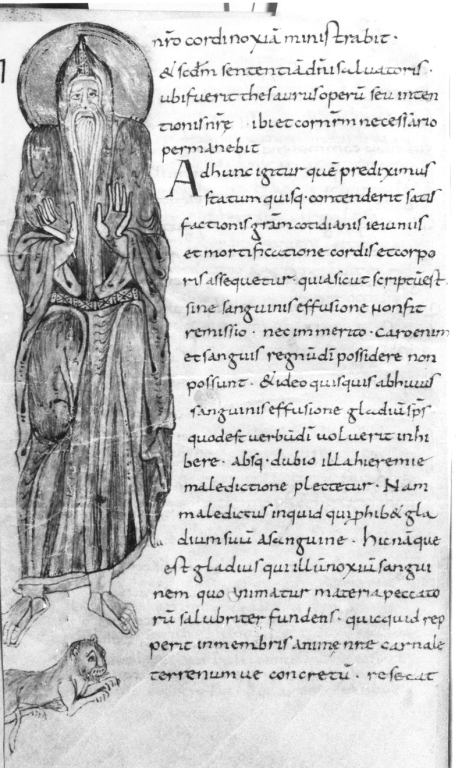 nr̄o cordi noxiā ministrabit ·
& scdm̄ sententiā dn̄i salvatoris ·
ubi fuerit thesaurus operū seu inten
tionis nr̄ę ibi et cor nr̄m necessario
permanebit
Ad hunc igitur quē prediximus
statum quisq· contenderit satis
factionis grām cotidianis ieiuniis
et mortificatione cordis et corpo
ris assequetur · quia sicut scriptū est ·
sine sanguinis effusione non fit
remissio · nec immerito · Caro enim
et sanguis regnū dī possidere non
possunt · & ideo quisquis ab huius
sanguinis effusione gladiū sp̄s
quod est verbū dī voluerit inhi
bere · absq· dubio illa hieremie
maledictione plectetur · Nam
maledictus inquid qui phib& gla
dium suū a sanguine · hic nāque
est gladius qui illū noxiū sangui
nem quo animatur materia peccato
rū salubriter fundens · quicquid rep
perit in membris anime nr̄e carnale
terrenumve concretū · resecat